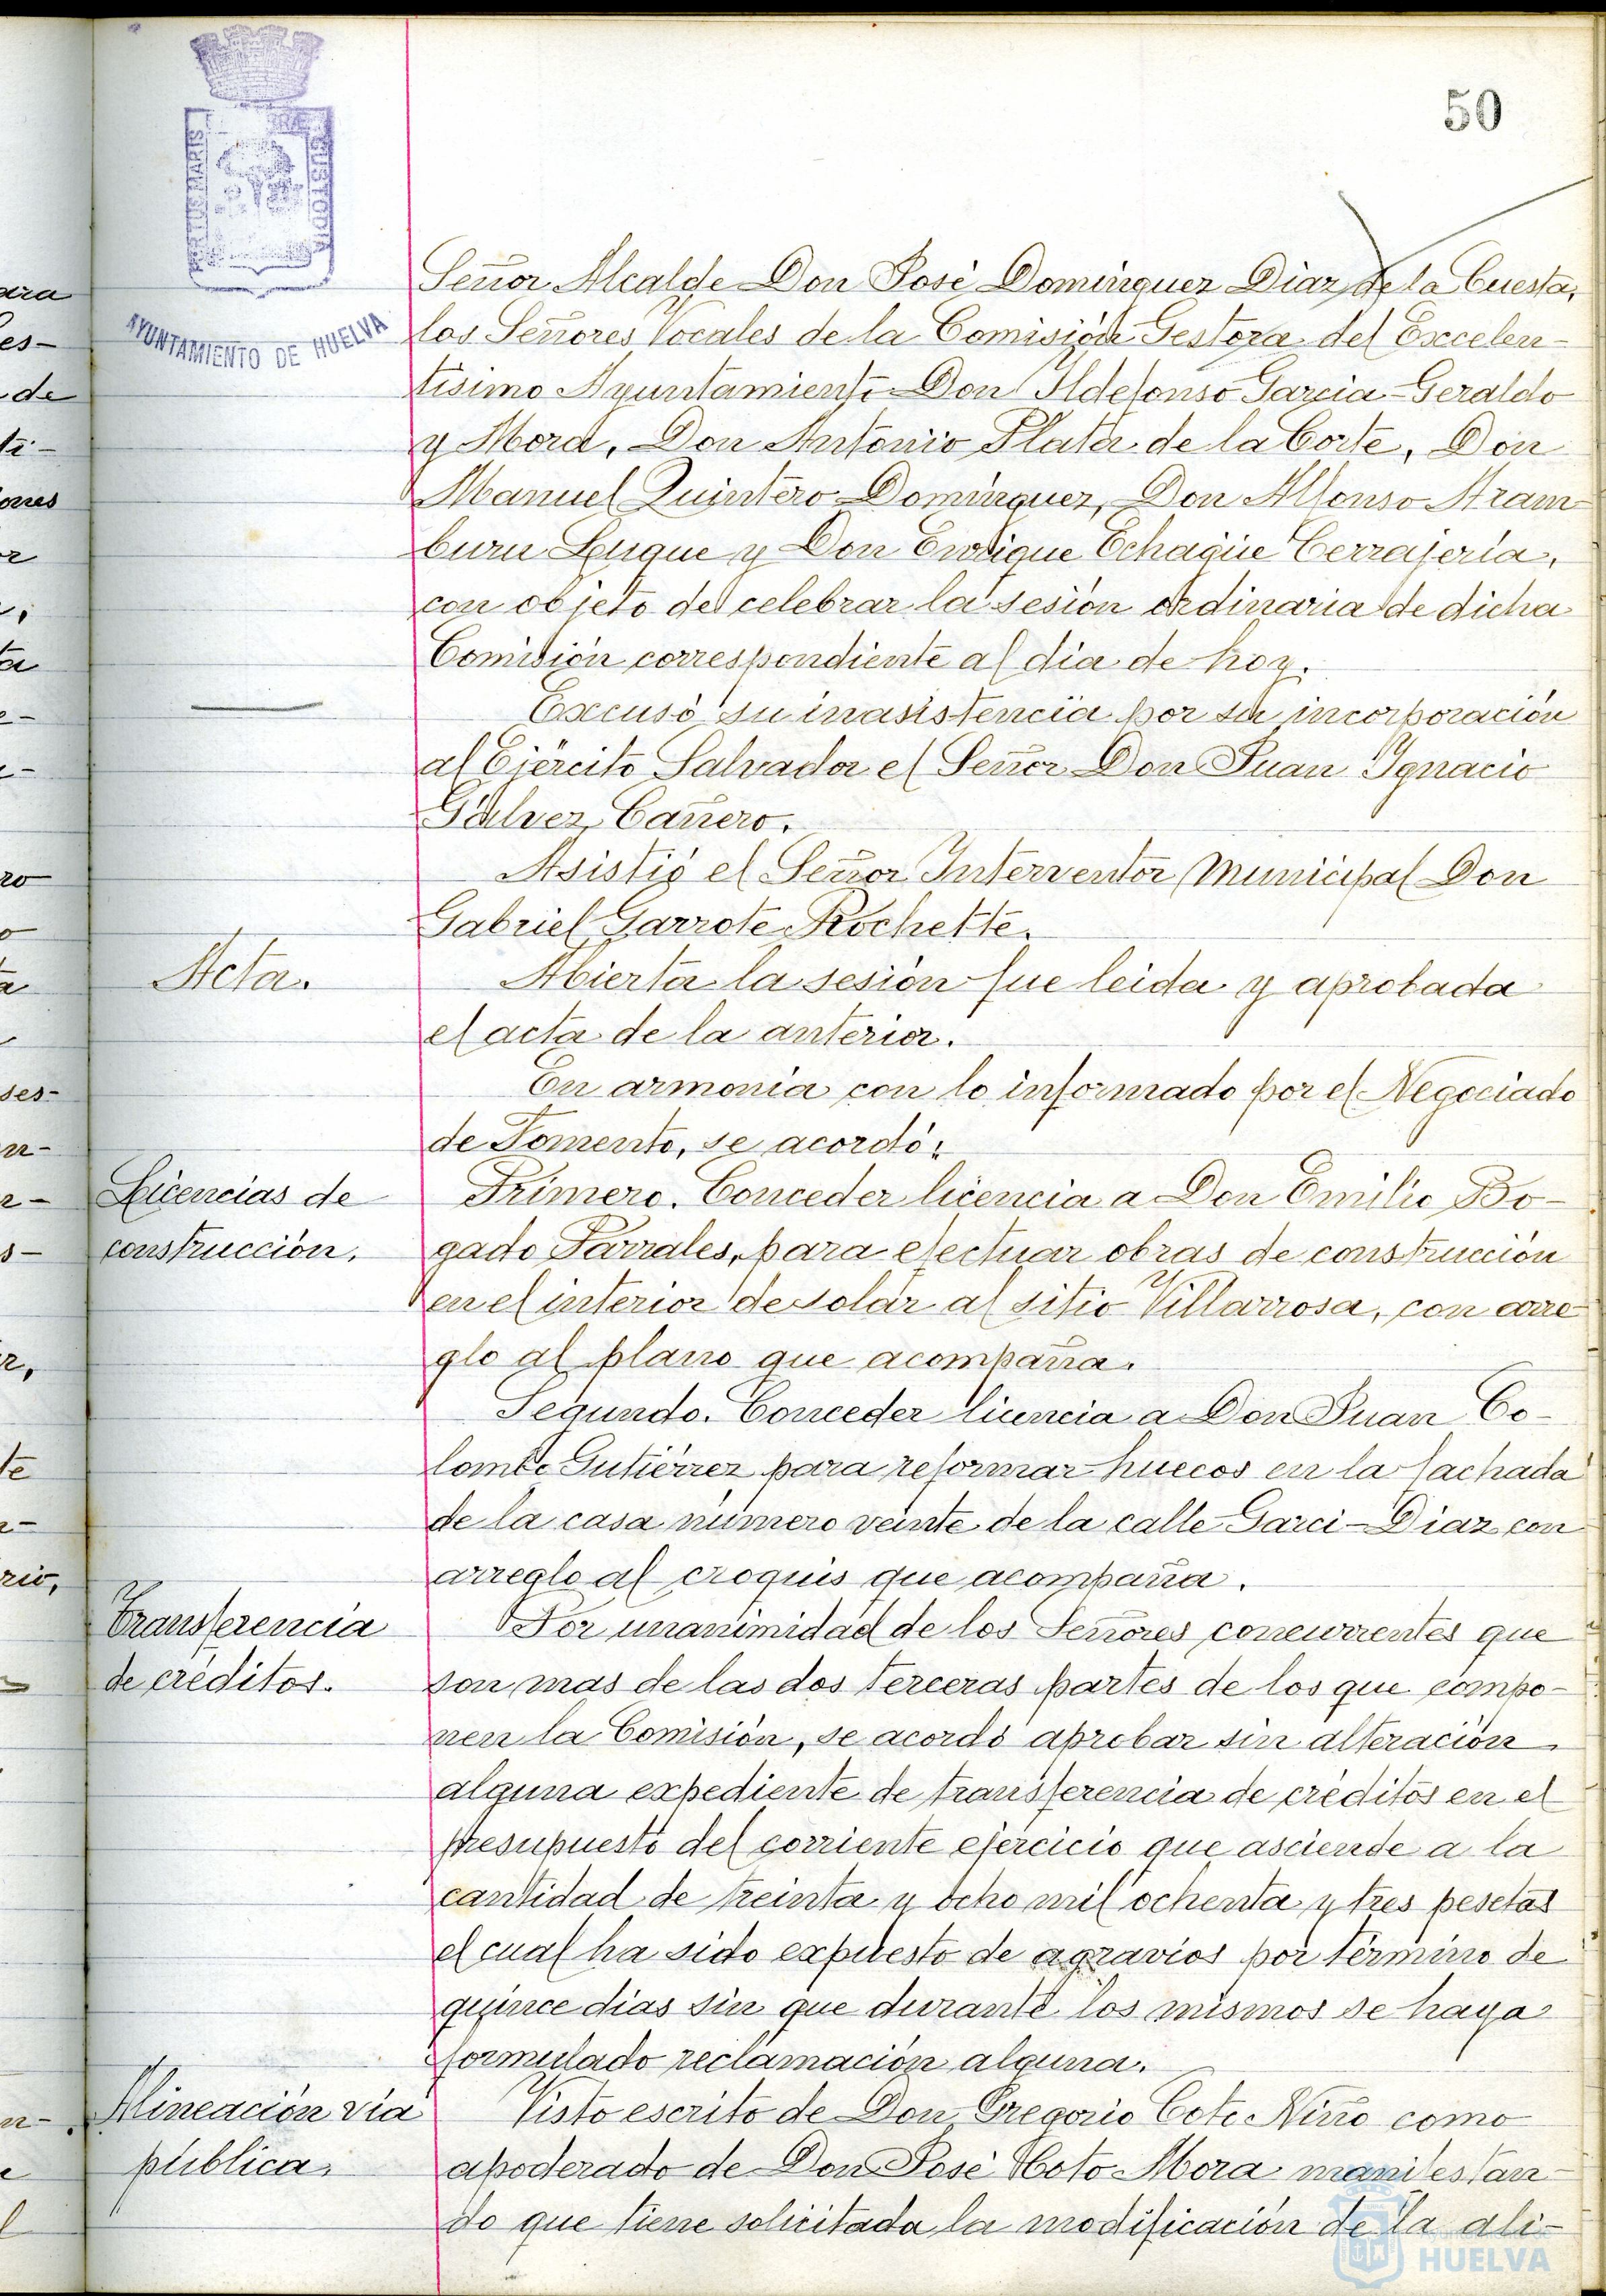 50
PORTUS MARIS
CUSTODIA
AYUNTAMIENTO DE HUELVA
Señor Alcalde Don José Dominguez Diaz de la Cuesta,
los Señores Vocales de la Comisión Gestora del Excelen-
tisimo Ayuntamiento Don Ildefonso Garcia-Geraldo
y Mora, Don Antonio Plata de la Corte, Don
Manuel Quintero Dominguez, Don Alfonso Aram-
buru Luque y Don Enrique Echagüe Cerrajería,
con objeto de celebrar la sesión ordinaria de dicha
Comisión correspondiente al dia de hoy.
Excusó su inasistencia por su incorporación
al Ejército Salvador el Señor Don Juan Ignacio
Gálvez Cañero.
Asistió el Señor Interventor Municipal Don
Gabriel Garrote Rochette.
Acta.
Abierta la sesión fue leida y aprobada
el acta de la anterior.
En armonia con lo informado por el Negociado
de Fomento, se acordó:
Licencias de
construcción.
Primero. Conceder licencia a Don Emilio Bo-
gado Parrales, para efectuar obras de construcción
en el interior de solar al sitio Villarrosa, con arre-
glo al plano que acompaña.
Segundo. Conceder licencia a Don Juan Co-
lombo Gutiérrez para reformar huecos en la fachada
de la casa número veinte de la calle Garci-Diaz con
arreglo al croquis que acompaña.
Transferencia
de créditos.
Por unanimidad de los Señores concurrentes que
son mas de las dos terceras partes de los que compo-
nen la Comisión, se acordó aprobar sin alteración
alguna expediente de transferencia de créditos en el
presupuesto del corriente ejercicio que asciende a la
cantidad de treinta y ocho mil ochenta y tres pesetas
el cual ha sido expuesto de agravios por término de
quince dias sin que durante los mismos se haya
formulado reclamación alguna.
Alineación via
pública.
Visto escrito de Don Gregorio Coto Niño como
apoderado de Don José Coto Mora manifestan-
do que tiene solicitada la modificación de la ali-
HUELVA